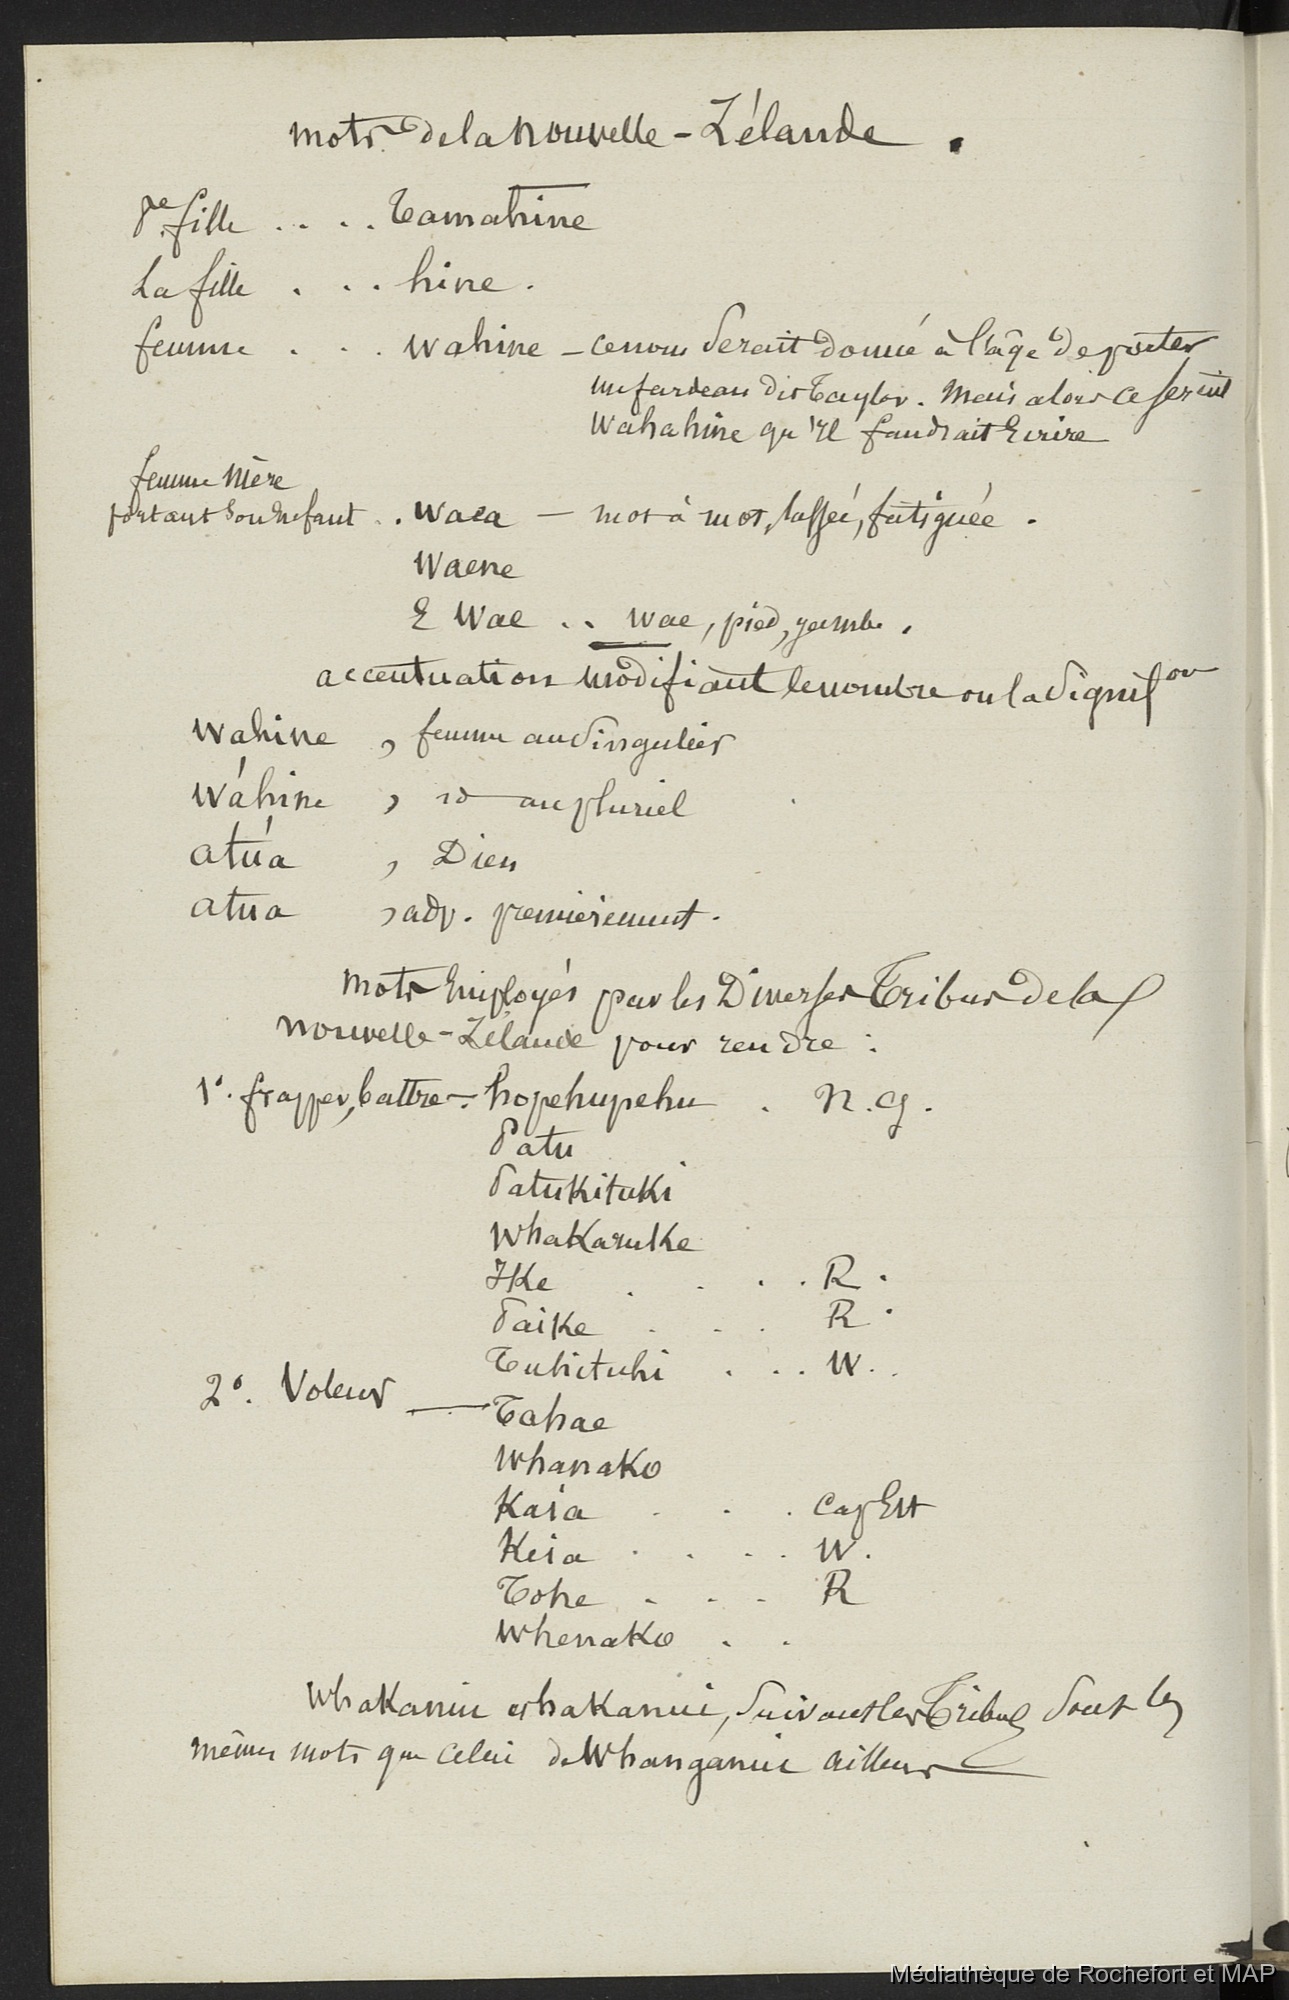 Mots de la Nouvelle-Zélande.
Pe. fille .... Tamahine
La fille ... hine.
femme ... Wahine - ce nom serait donné à l'âge de porter
un fardeau dit Taylor. Mais alors ce serait
Wahahine qu'il faudrait Ecrire
femme Mère
portant son Enfant .. Waea - mot à mot, lassée, fatiguée.
Waene
E Wae .. Wae, pied, jambe.
accentuation modifiant le nombre ou la Signif on
Wahine, femme au Singulier
Wáhine, id au pluriel
atúa, Dieu
atua, adv. premièrement.
Mots Employés par les Diverses Tribus de la
Nouvelle-Zélande pour rendre :
1°. frapper, battre -. hopehupehu . N. G.
Patu
Patukituki
Whakaruke
Ike .... R.
Paike ... R.
Tukituki ... W..
2°. Voleur — Tahae
Whanako
Kaia ... Cap Est
Keia .... W.
Tohe ... R
Whenako ..
Whakanui et hakanui, Suivant les Tribus Sont les
mêmes mots que celui de Whanganui ailleurs
Médiathèque de Rochefort et MAP